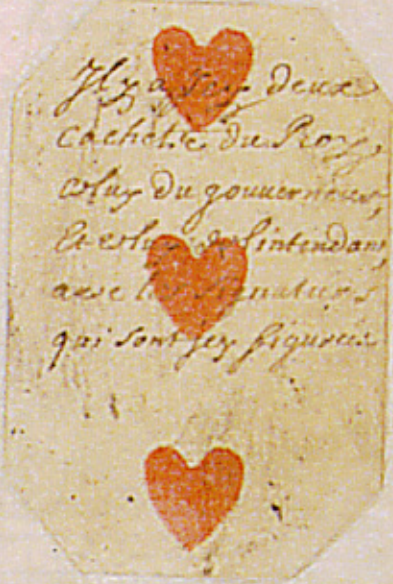 Il y a icy deux
cachets du Roy,
celuy du gouverneur,
Et celuy de l'intendant,
avec les signatures
qui sont icy figurées